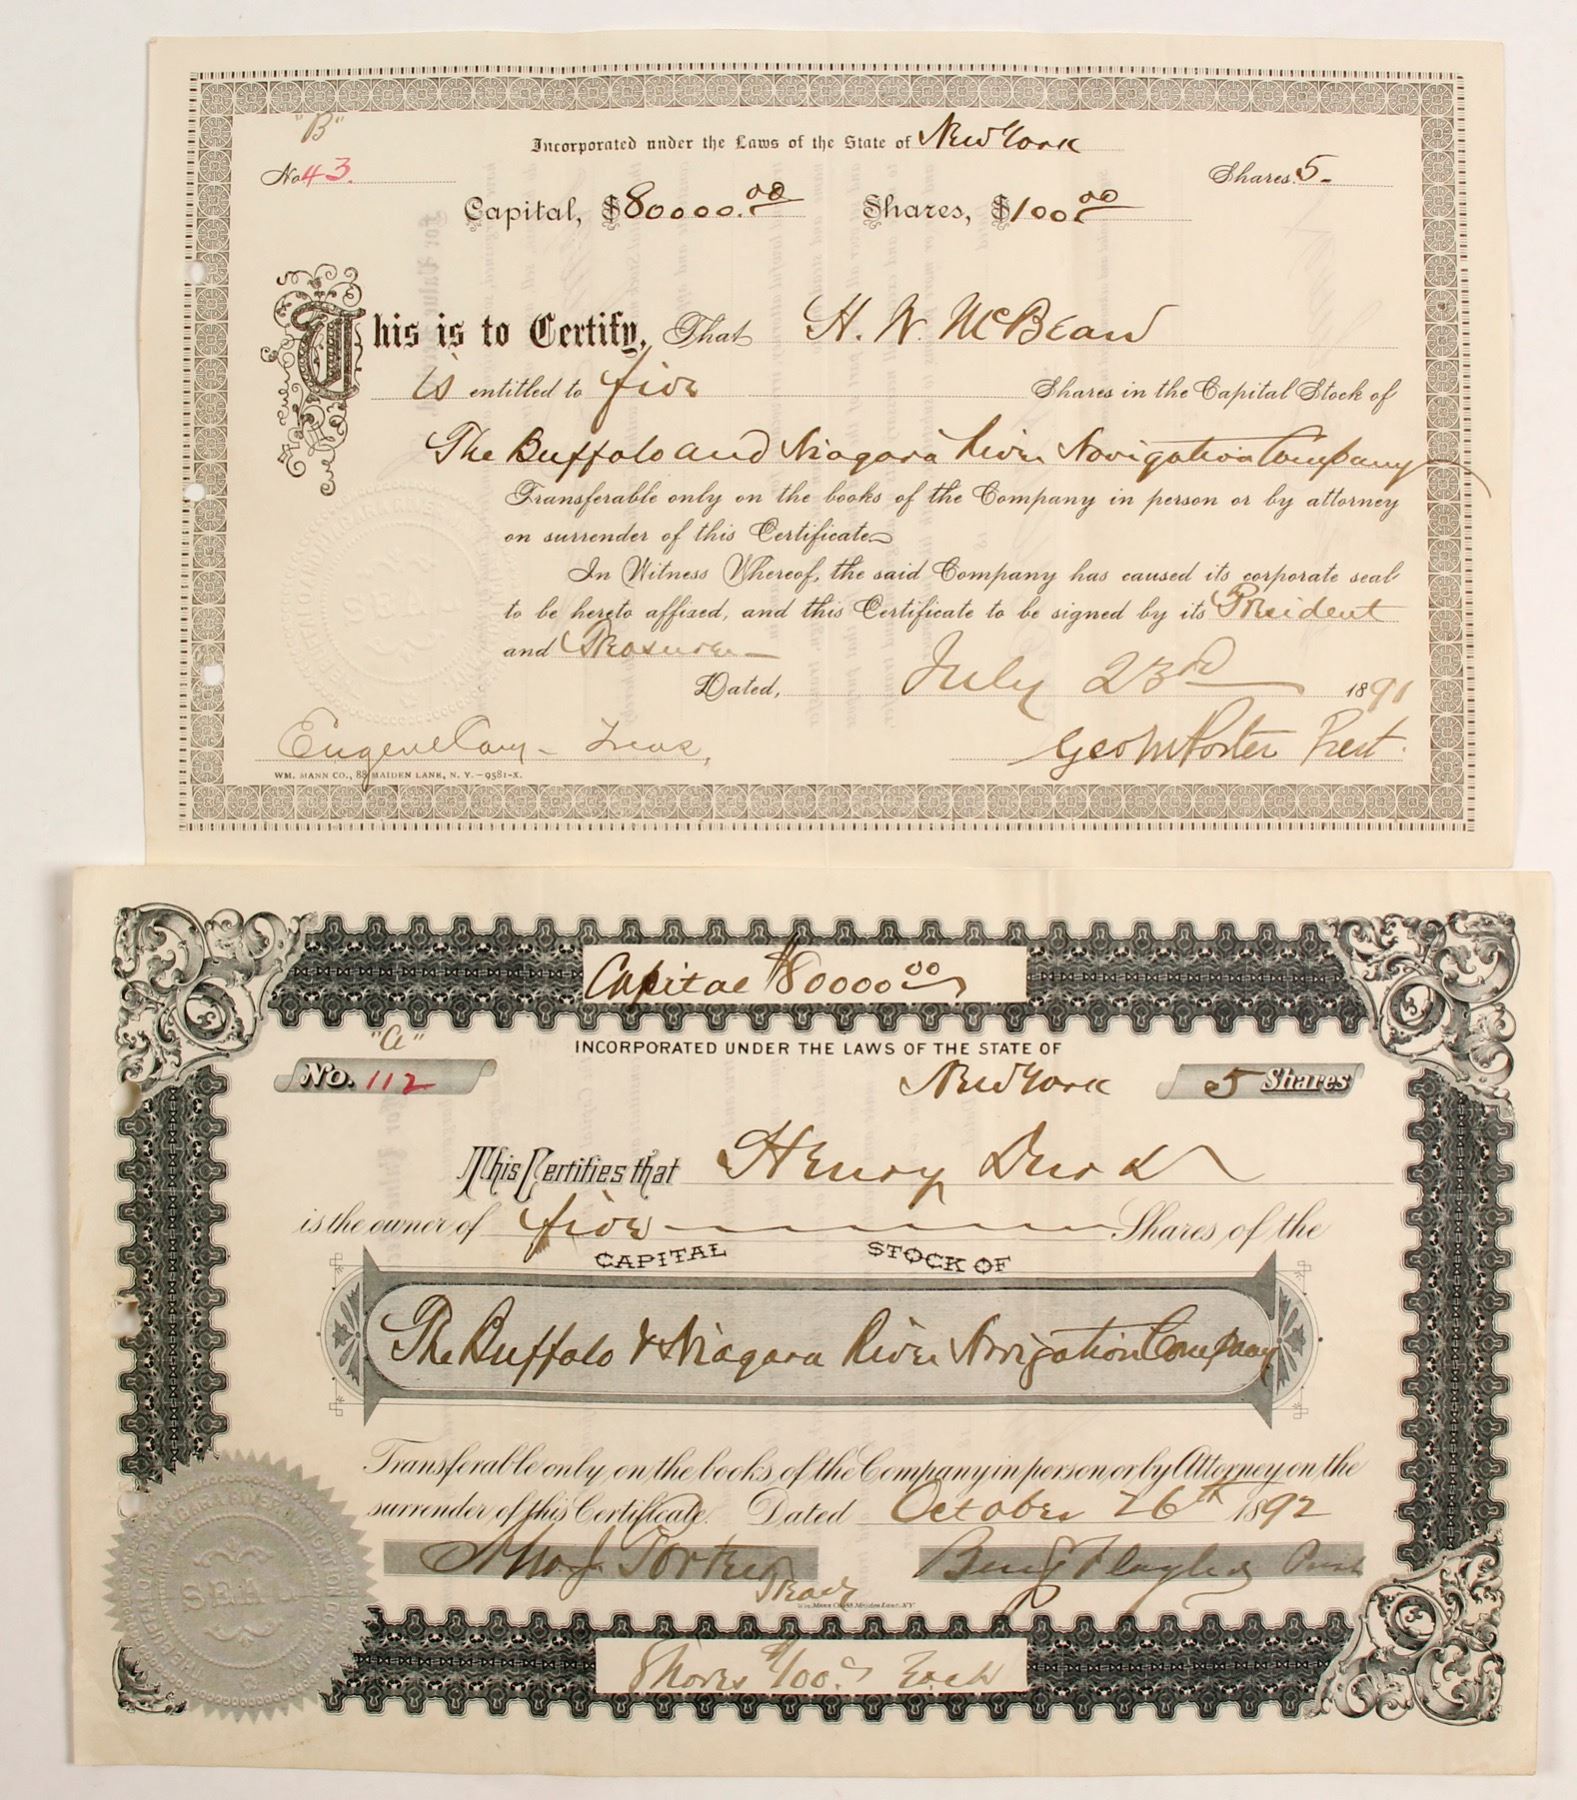 "B"
Incorporated under the Laws of the State of New York
No 43.
Shares. 5-
Capital, $80000.00 Shares, $100 00
This is to Certify, That H. W. McBean
is entitled to five Shares in the Capital Stock of
The Buffalo and Niagara River Navigation Company
Transferable only on the books of the Company in person or by attorney
on surrender of this Certificate.
In Witness Whereof, the said Company has caused its corporate seal
to be hereto affixed, and this Certificate to be signed by its President
and Treasurer
Dated, July 23rd 1891
Eugene Cary - Treas,
Geo M Porter Prest.
WM. MANN CO., 88 MAIDEN LANE, N. Y.-9581-X.
Capital $80000 00
INCORPORATED UNDER THE LAWS OF THE STATE OF
"A"
No. 112
New York
5 Shares
This Certifies that Henry Durk
is the owner of five Shares of the
CAPITAL STOCK OF
The Buffalo & Niagara River Navigation Company
Transferable only on the books of the Company in person or by Attorney on the
surrender of this Certificate. Dated October 26th 1892
Porter Treas
Benj Flagler Prest
Wm. Mann Co. 88 Maiden Lane, N.Y.
SEAL
Shares $100. Each